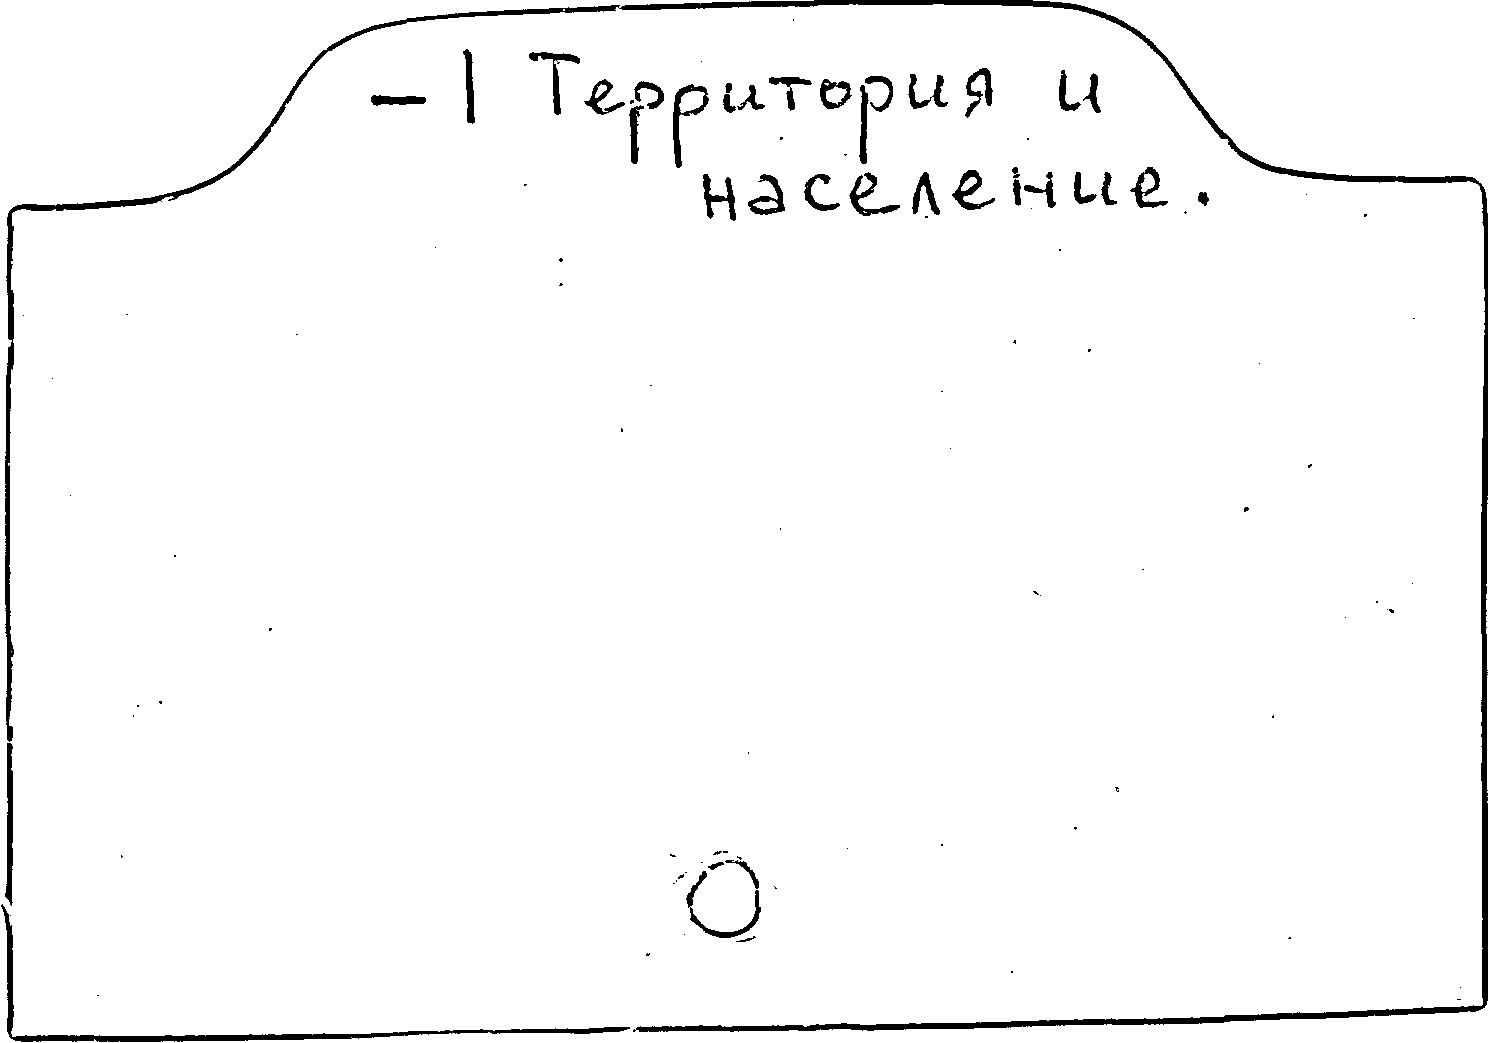 - 1 Территория и
население.